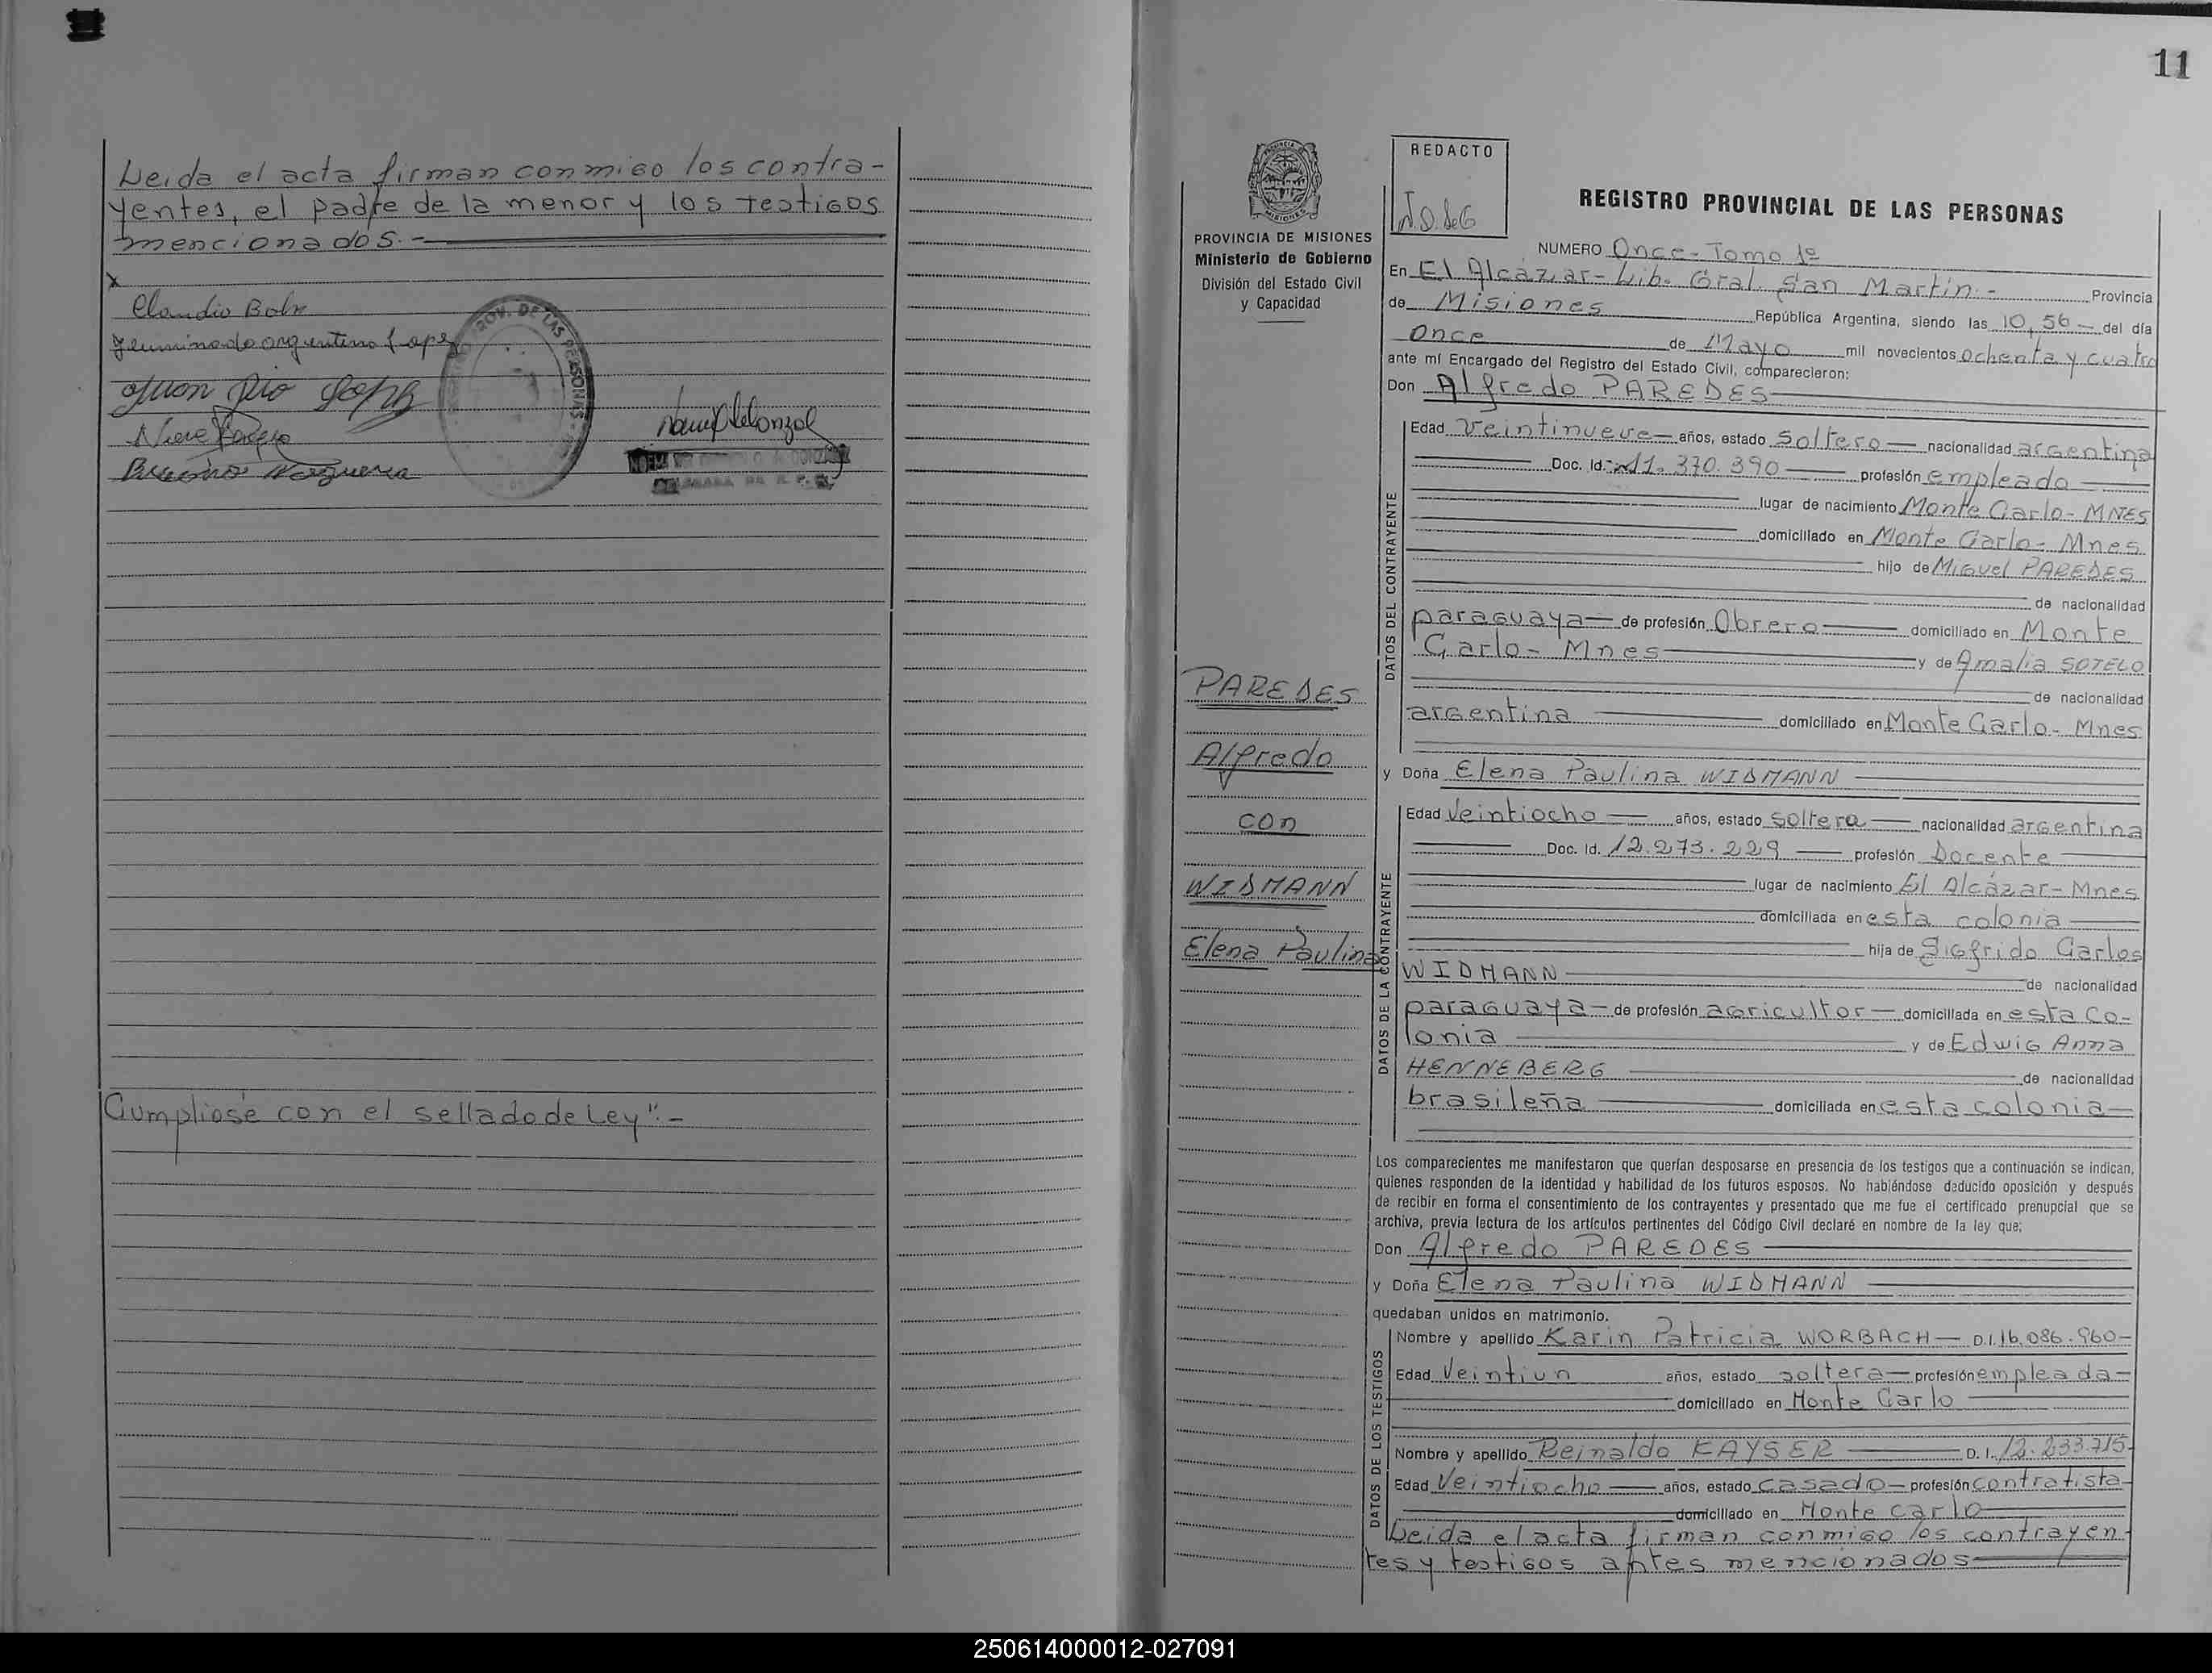 Leida el acta firman conmigo los contra-
yentes, el padre de la menor y los testigos
mencionados.-
x
Claudio
Juan Pio
Cumpliose con el sellado de Ley".-
11
PROVINCIA DE MISIONES
Ministerio de Gobierno
División del Estado Civil
y Capacidad
PAREDES
Alfredo
con
WIDMANN
Elena Paulina
REDACTO
REGISTRO PROVINCIAL DE LAS PERSONAS
NUMERO Once - Tomo 1º
En El Alcázar - Lib. Gral. San Martin.- Provincia
de Misiones República Argentina, siendo las 10,56 - del día
once de Mayo mil novecientos ochenta y cuatro
ante mí Encargado del Registro del Estado Civil, comparecieron:
Don Alfredo PAREDES
DATOS DEL CONTRAYENTE
Edad Veintinueve - años, estado soltero - nacionalidad argentina
Doc. Id. 11.370.390 profesión empleado
lugar de nacimiento Monte Carlo - MNES
domiciliado en Monte Carlo - Mnes
hijo de Miguel PAREDES
de nacionalidad
paraguaya - de profesión Obrero domiciliado en Monte
Carlo - Mnes y de Amalia SOTELO
de nacionalidad
argentina domiciliado en Monte Carlo - Mnes
y Doña Elena Paulina WIDMANN
DATOS DE LA CONTRAYENTE
Edad Veintiocho años, estado soltera nacionalidad argentina
Doc. Id. 12.273.229 profesión Docente
lugar de nacimiento El Alcázar - Mnes
domiciliada en esta colonia
hija de Sigfrido Carlos
WIDMANN de nacionalidad
paraguaya - de profesión agricultor - domiciliada en esta co-
lonia y de Edwig Anna
HENNEBERG de nacionalidad
brasileña domiciliada en esta colonia
Los comparecientes me manifestaron que querían desposarse en presencia de los testigos que a continuación se indican,
quienes responden de la identidad y habilidad de los futuros esposos. No habiéndose deducido oposición y después
de recibir en forma el consentimiento de los contrayentes y presentado que me fue el certificado prenupcial que se
archiva, previa lectura de los artículos pertinentes del Código Civil declaré en nombre de la ley que;
Don Alfredo PAREDES
y Doña Elena Paulina WIDMANN
quedaban unidos en matrimonio.
DATOS DE LOS TESTIGOS
Nombre y apellido Karin Patricia WORBACH - D.I. 16.086.960-
Edad Veintiun años, estado soltera - profesión empleada -
domiciliado en Monte Carlo
Nombre y apellido Reinaldo KAYSER D. I. 12.233.715
Edad Veintiocho años, estado casado - profesión contratista
domiciliado en Monte Carlo
Leida el acta firman conmigo los contrayen-
tes y testigos antes mencionados
250614000012-027091